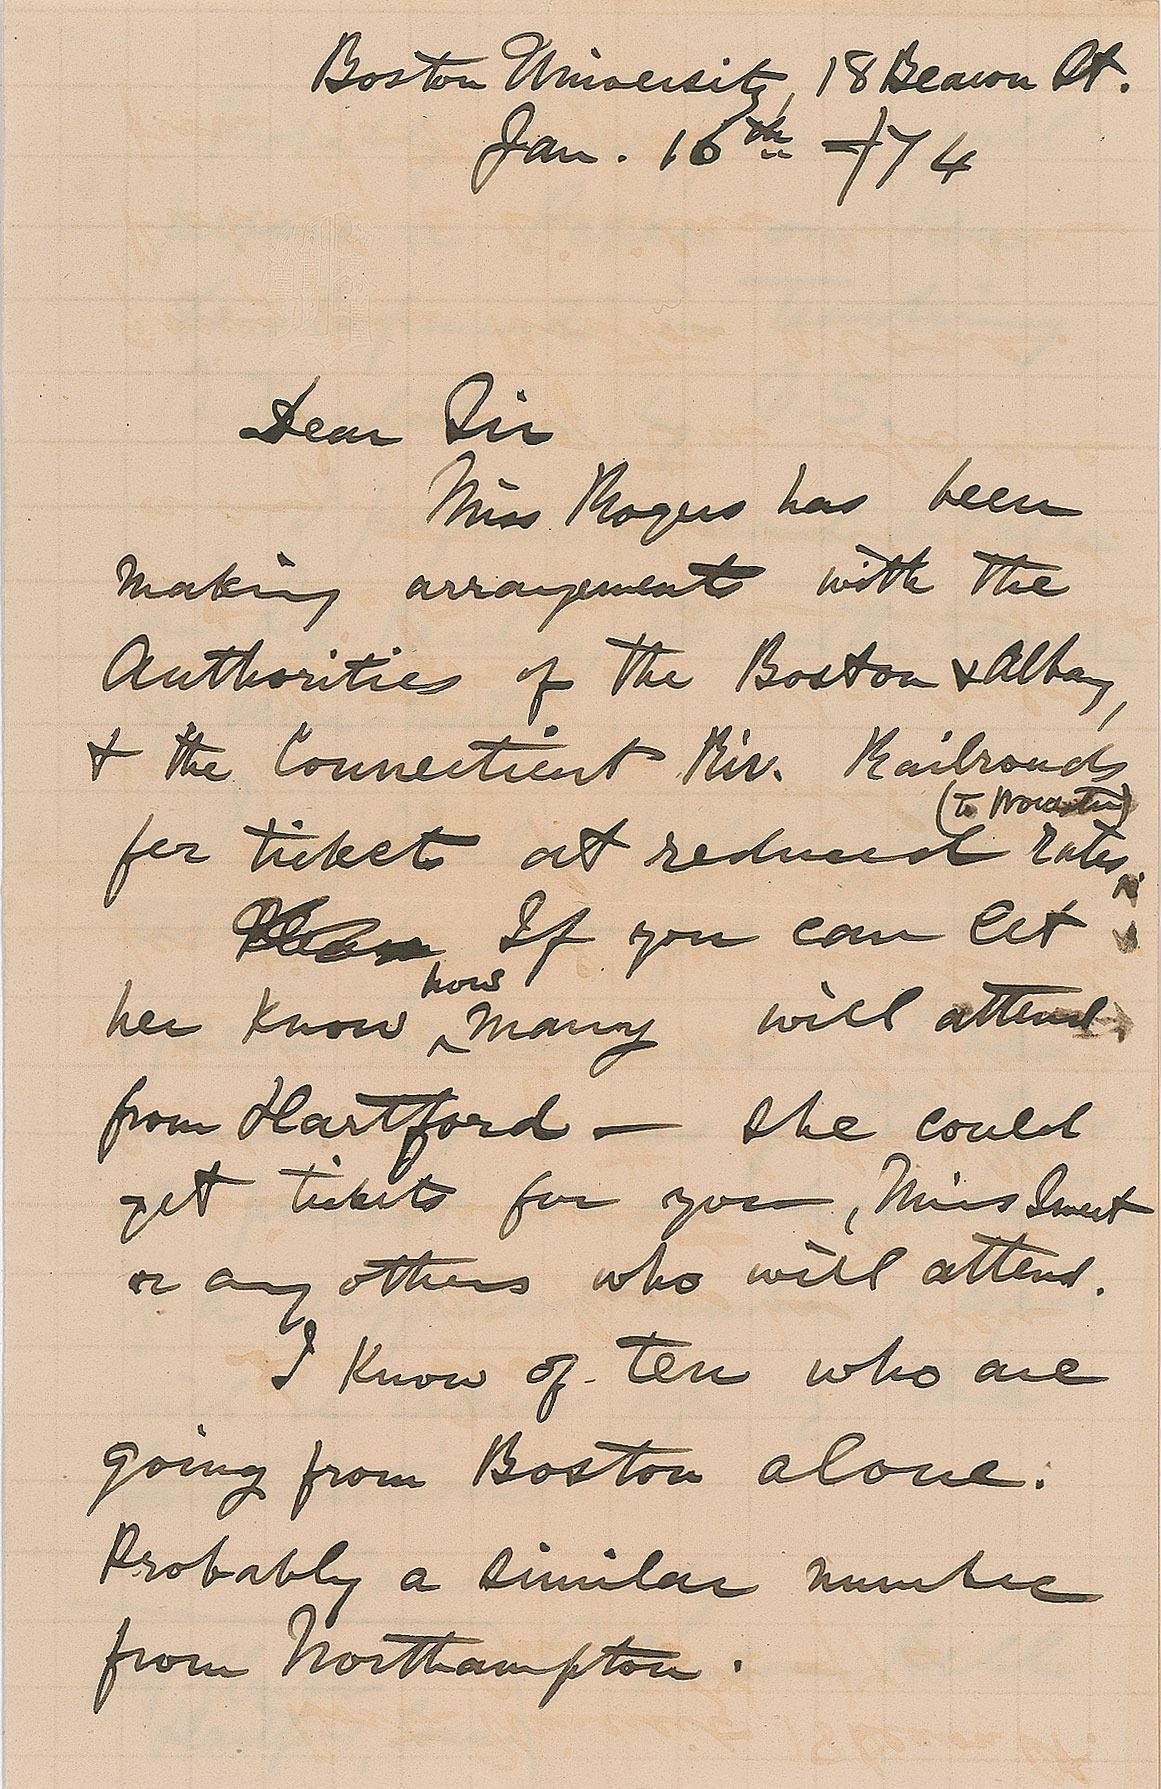 Boston University, 18 Beacon St.
Jan. 16th /74
Dear Sir
Miss Rogers has been
making arrangements with the
Authorities of the Boston & Albany,
& the Connecticut Riv. Railroads
(to Worcester)
for tickets at reduced rates.
If you can let
how
her know ^ many will attend
from Hartford — she could
get tickets for you, Miss Sweet
or any others who will attend.
I know of ten who are
going from Boston alone.
Probably a similar number
from Northampton.